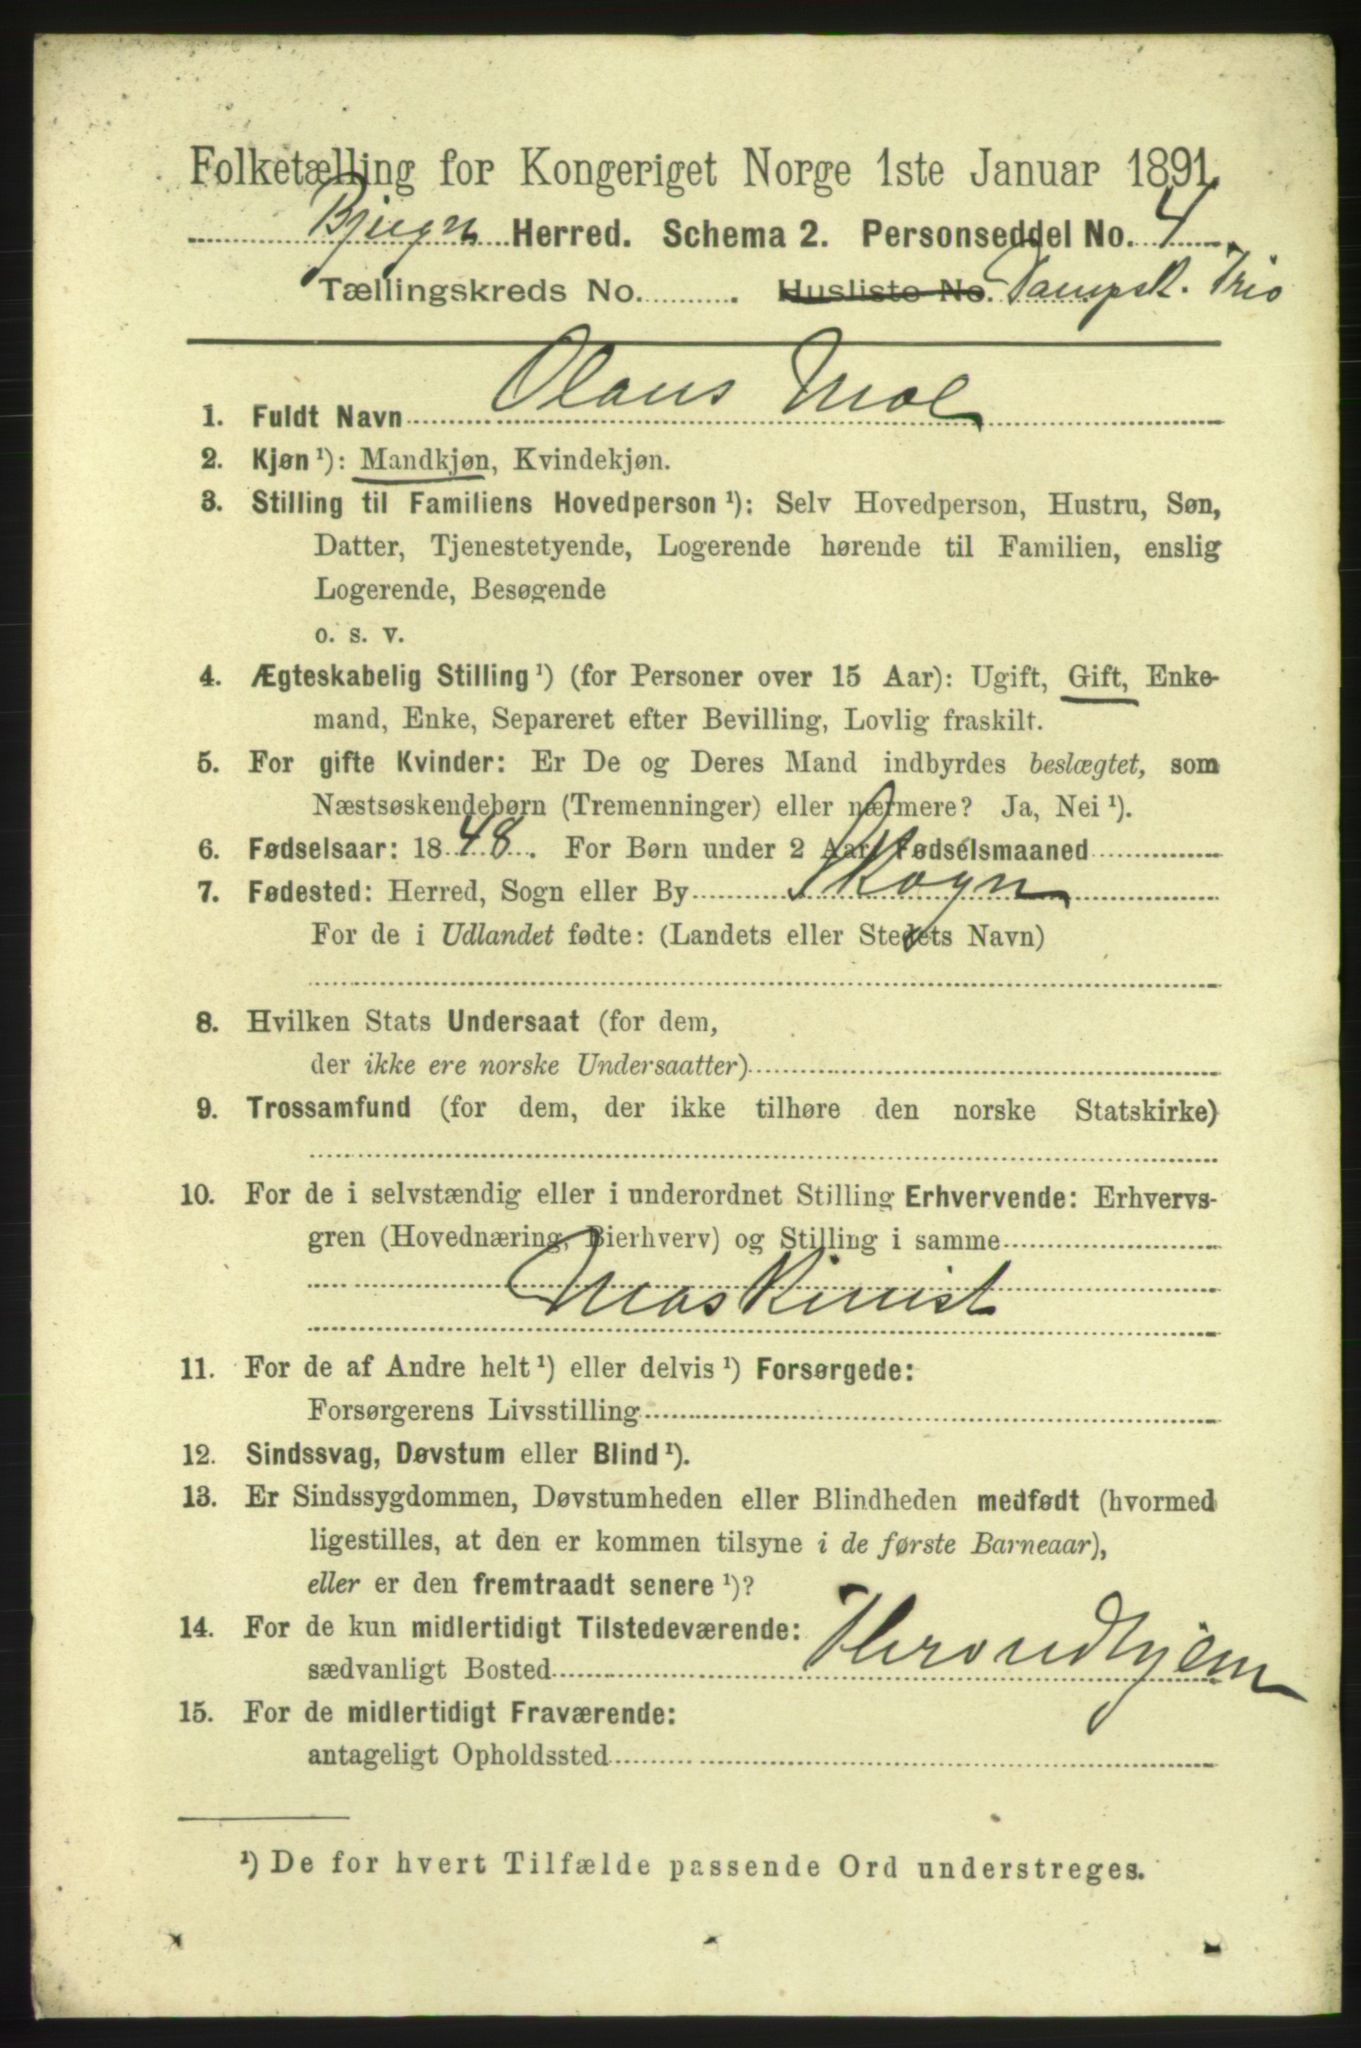 Folketælling for Kongeriget Norge 1ste Januar 1891.
Bjugn Herred. Schema 2. Personseddel No. 4
Tællingskreds No. . Husliste No. Dampsk. Trio
1. Fuldt Navn Olaus Moe
2. Kjøn ¹): Mandkjøn, Kvindekjøn.
3. Stilling til Familiens Hovedperson ¹): Selv Hovedperson, Hustru, Søn,
Datter, Tjenestetyende, Logerende hørende til Familien, enslig
Logerende, Besøgende
o. s. v.
4. Ægteskabelig Stilling ¹) (for Personer over 15 Aar): Ugift, Gift, Enke-
mand, Enke, Separeret efter Bevilling, Lovlig fraskilt.
5. For gifte Kvinder: Er De og Deres Mand indbyrdes beslægtet, som
Næstsøskendebørn (Tremenninger) eller nærmere? Ja, Nei ¹).
6. Fødselsaar: 1848. For Børn under 2 Aar: Fødselsmaaned
7. Fødested: Herred, Sogn eller By Skogn
For de i Udlandet fødte: (Landets eller Stedets Navn)
8. Hvilken Stats Undersaat (for dem,
der ikke ere norske Undersaatter)
9. Trossamfund (for dem, der ikke tilhøre den norske Statskirke)
10. For de i selvstændig eller i underordnet Stilling Erhvervende: Erhvervs-
gren (Hovednæring, Bierhverv) og Stilling i samme
Maskinist
11. For de af Andre helt ¹) eller delvis ¹) Forsørgede:
Forsørgerens Livsstilling
12. Sindssvag, Døvstum eller Blind ¹).
13. Er Sindssygdommen, Døvstumheden eller Blindheden medfødt (hvormed
ligestilles, at den er kommen tilsyne i de første Barneaar),
eller er den fremtraadt senere ¹)?
14. For de kun midlertidigt Tilstedeværende:
sædvanligt Bosted Throndhjem
15. For de midlertidigt Fraværende:
antageligt Opholdssted
¹) De for hvert Tilfælde passende Ord understreges.